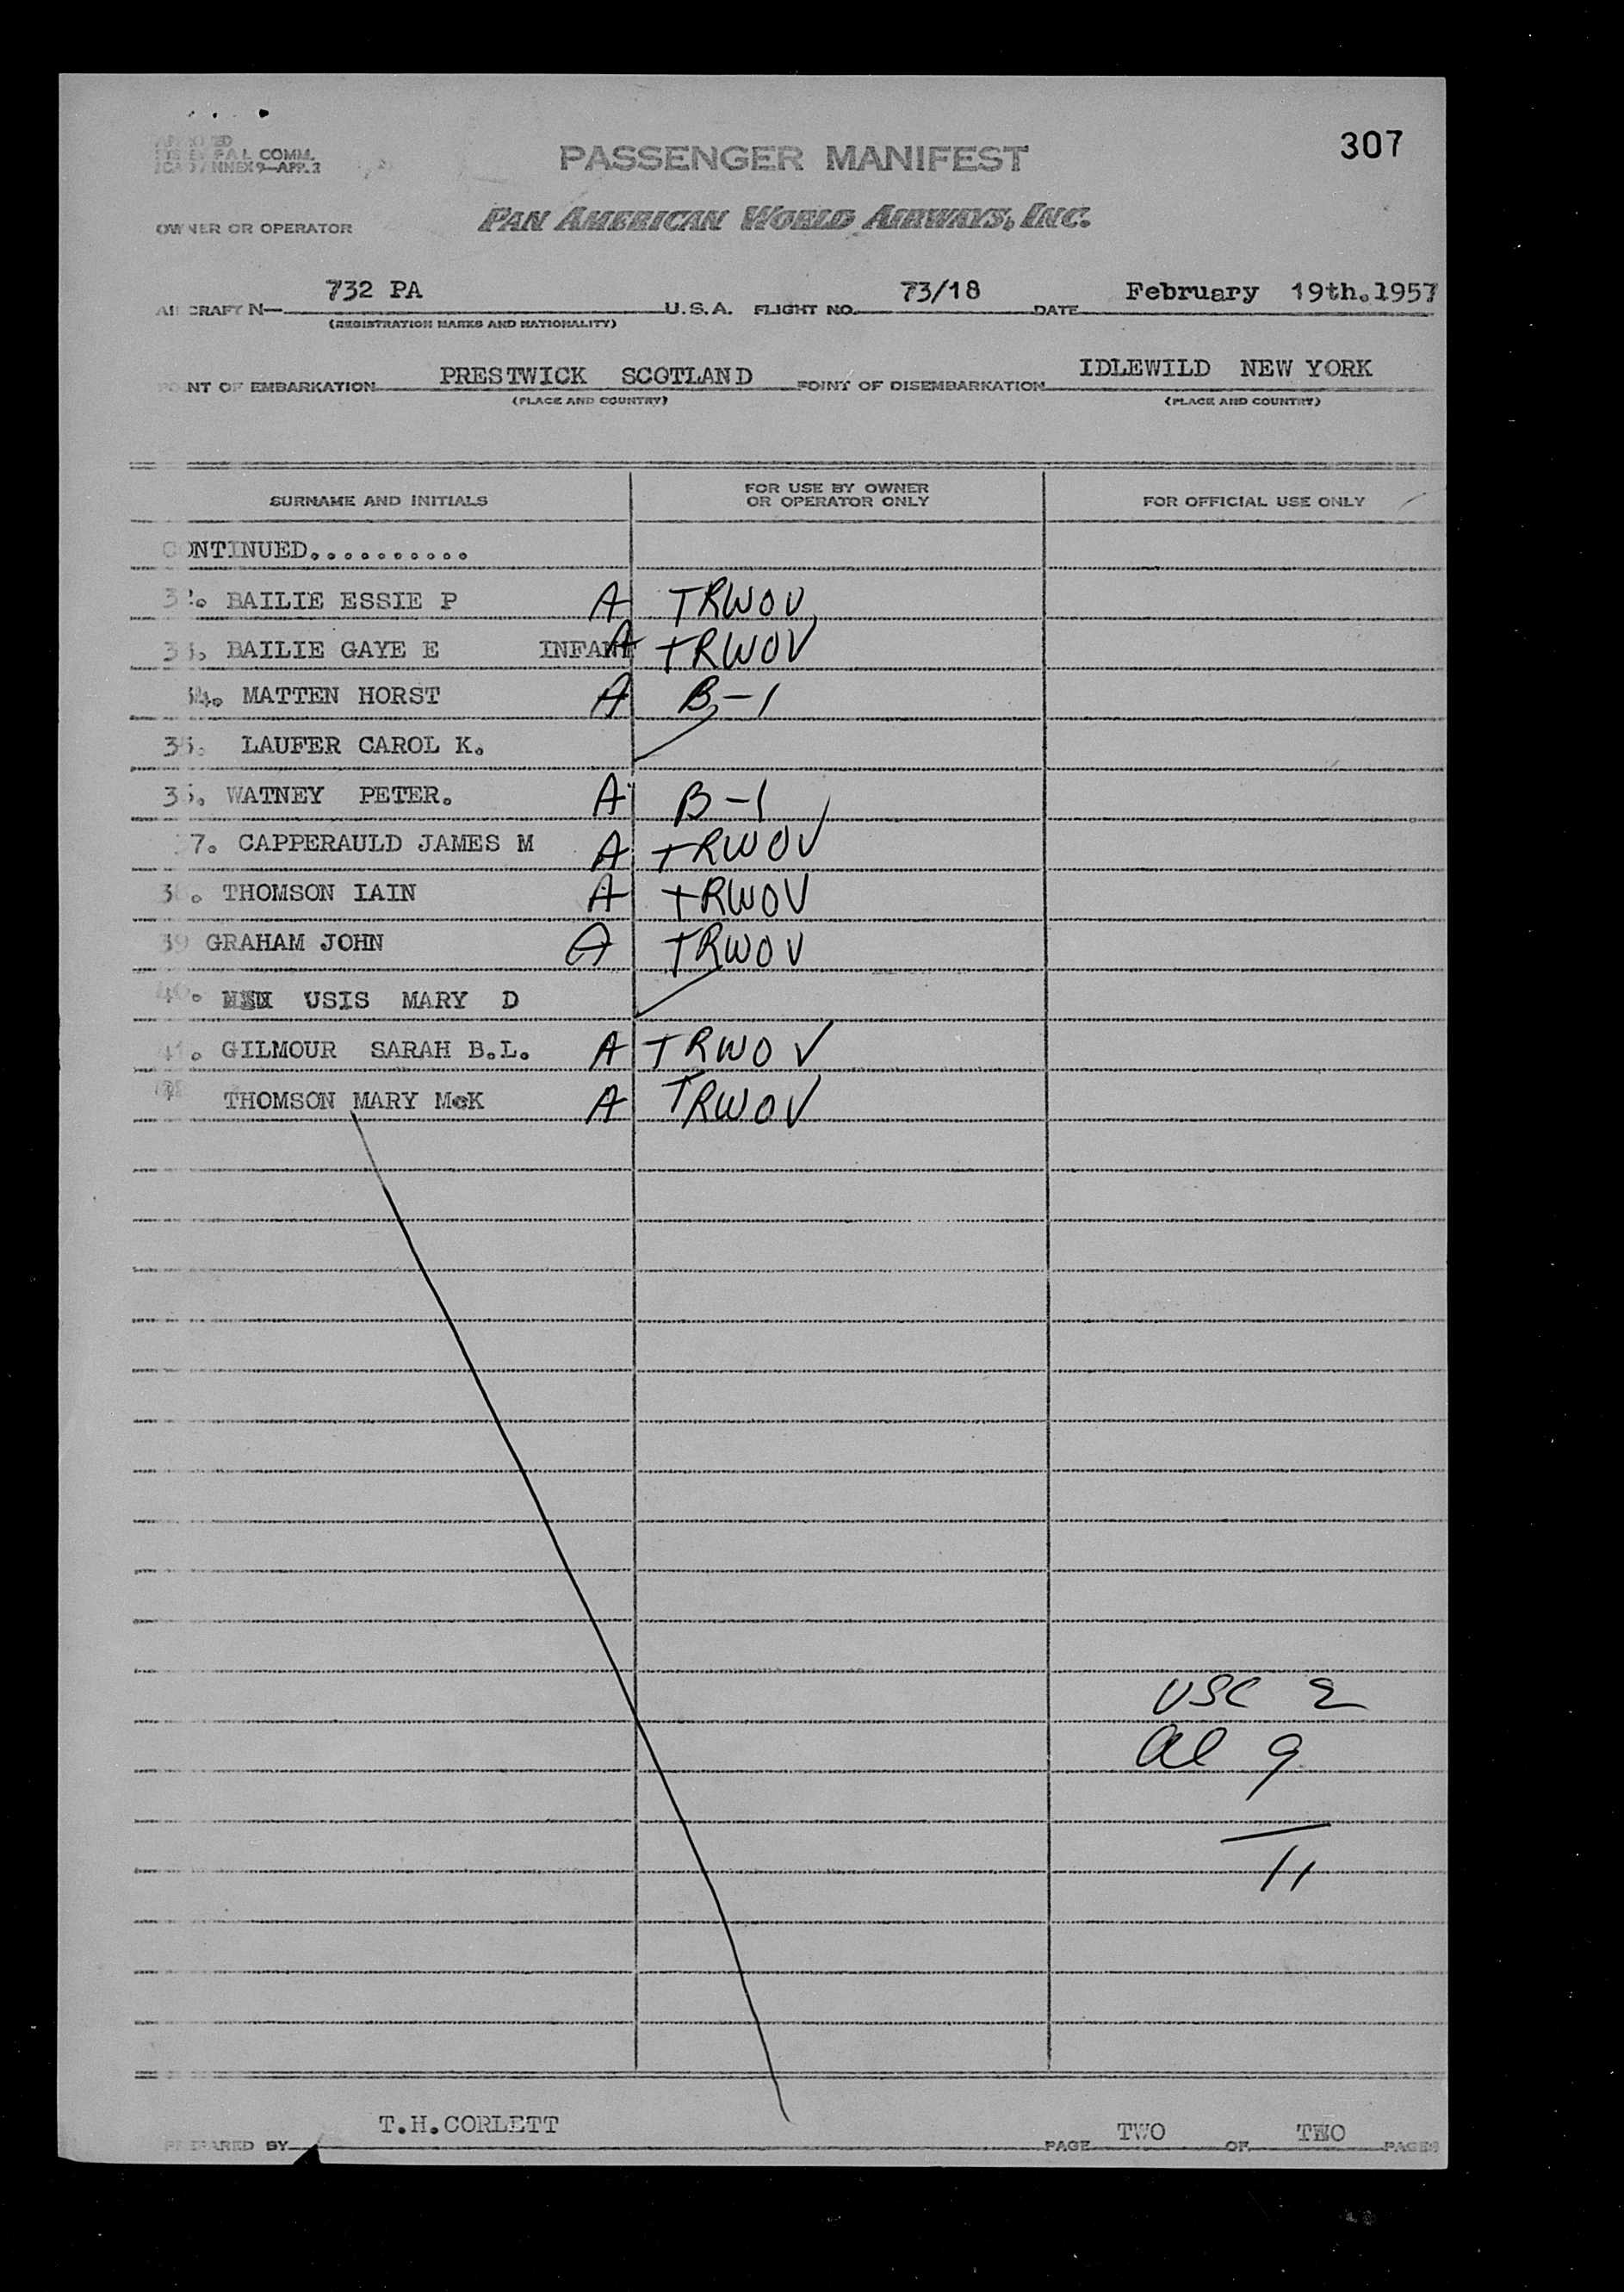 307
COMM.
ANNEX 9—APP. 2
PASSENGER MANIFEST
OWNER OR OPERATOR
PAN AMERICAN WORLD AIRWAYS, INC.
AIRCRAFT N— 732 PA U.S.A. FLIGHT NO. 73/18 DATE February 19th.1957
(REGISTRATION MARKS AND NATIONALITY)
POINT OF EMBARKATION PRESTWICK SCOTLAND POINT OF DISEMBARKATION IDLEWILD NEW YORK
(PLACE AND COUNTRY) (PLACE AND COUNTRY)
SURNAME AND INITIALS FOR USE BY OWNER OR OPERATOR ONLY FOR OFFICIAL USE ONLY
CONTINUED..........
32. BAILIE ESSIE P A TRWOV
33. BAILIE GAYE E INFANT A TRWOV
34. MATTEN HORST A B-1
35. LAUFER CAROL K.
36. WATNEY PETER. A B-1
37. CAPPERAULD JAMES M A TRWOV
38. THOMSON IAIN A TRWOV
39 GRAHAM JOHN A TRWOV
40. USIS MARY D
41. GILMOUR SARAH B.L. A TRWOV
42 THOMSON MARY McK A TRWOV
USC 2
al 9
11
PREPARED BY T.H.CORLETT PAGE TWO OF TWO PAGES